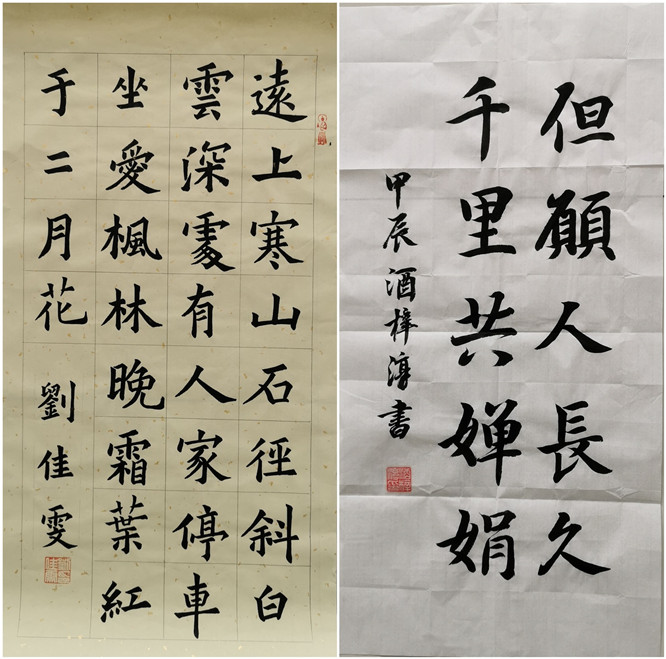 遠上寒山石徑斜白
雲深處有人家停車
坐愛楓林晚霜葉紅
于二月花
劉佳雯
但願人長久
千里共嬋娟
甲辰酒梓淳書